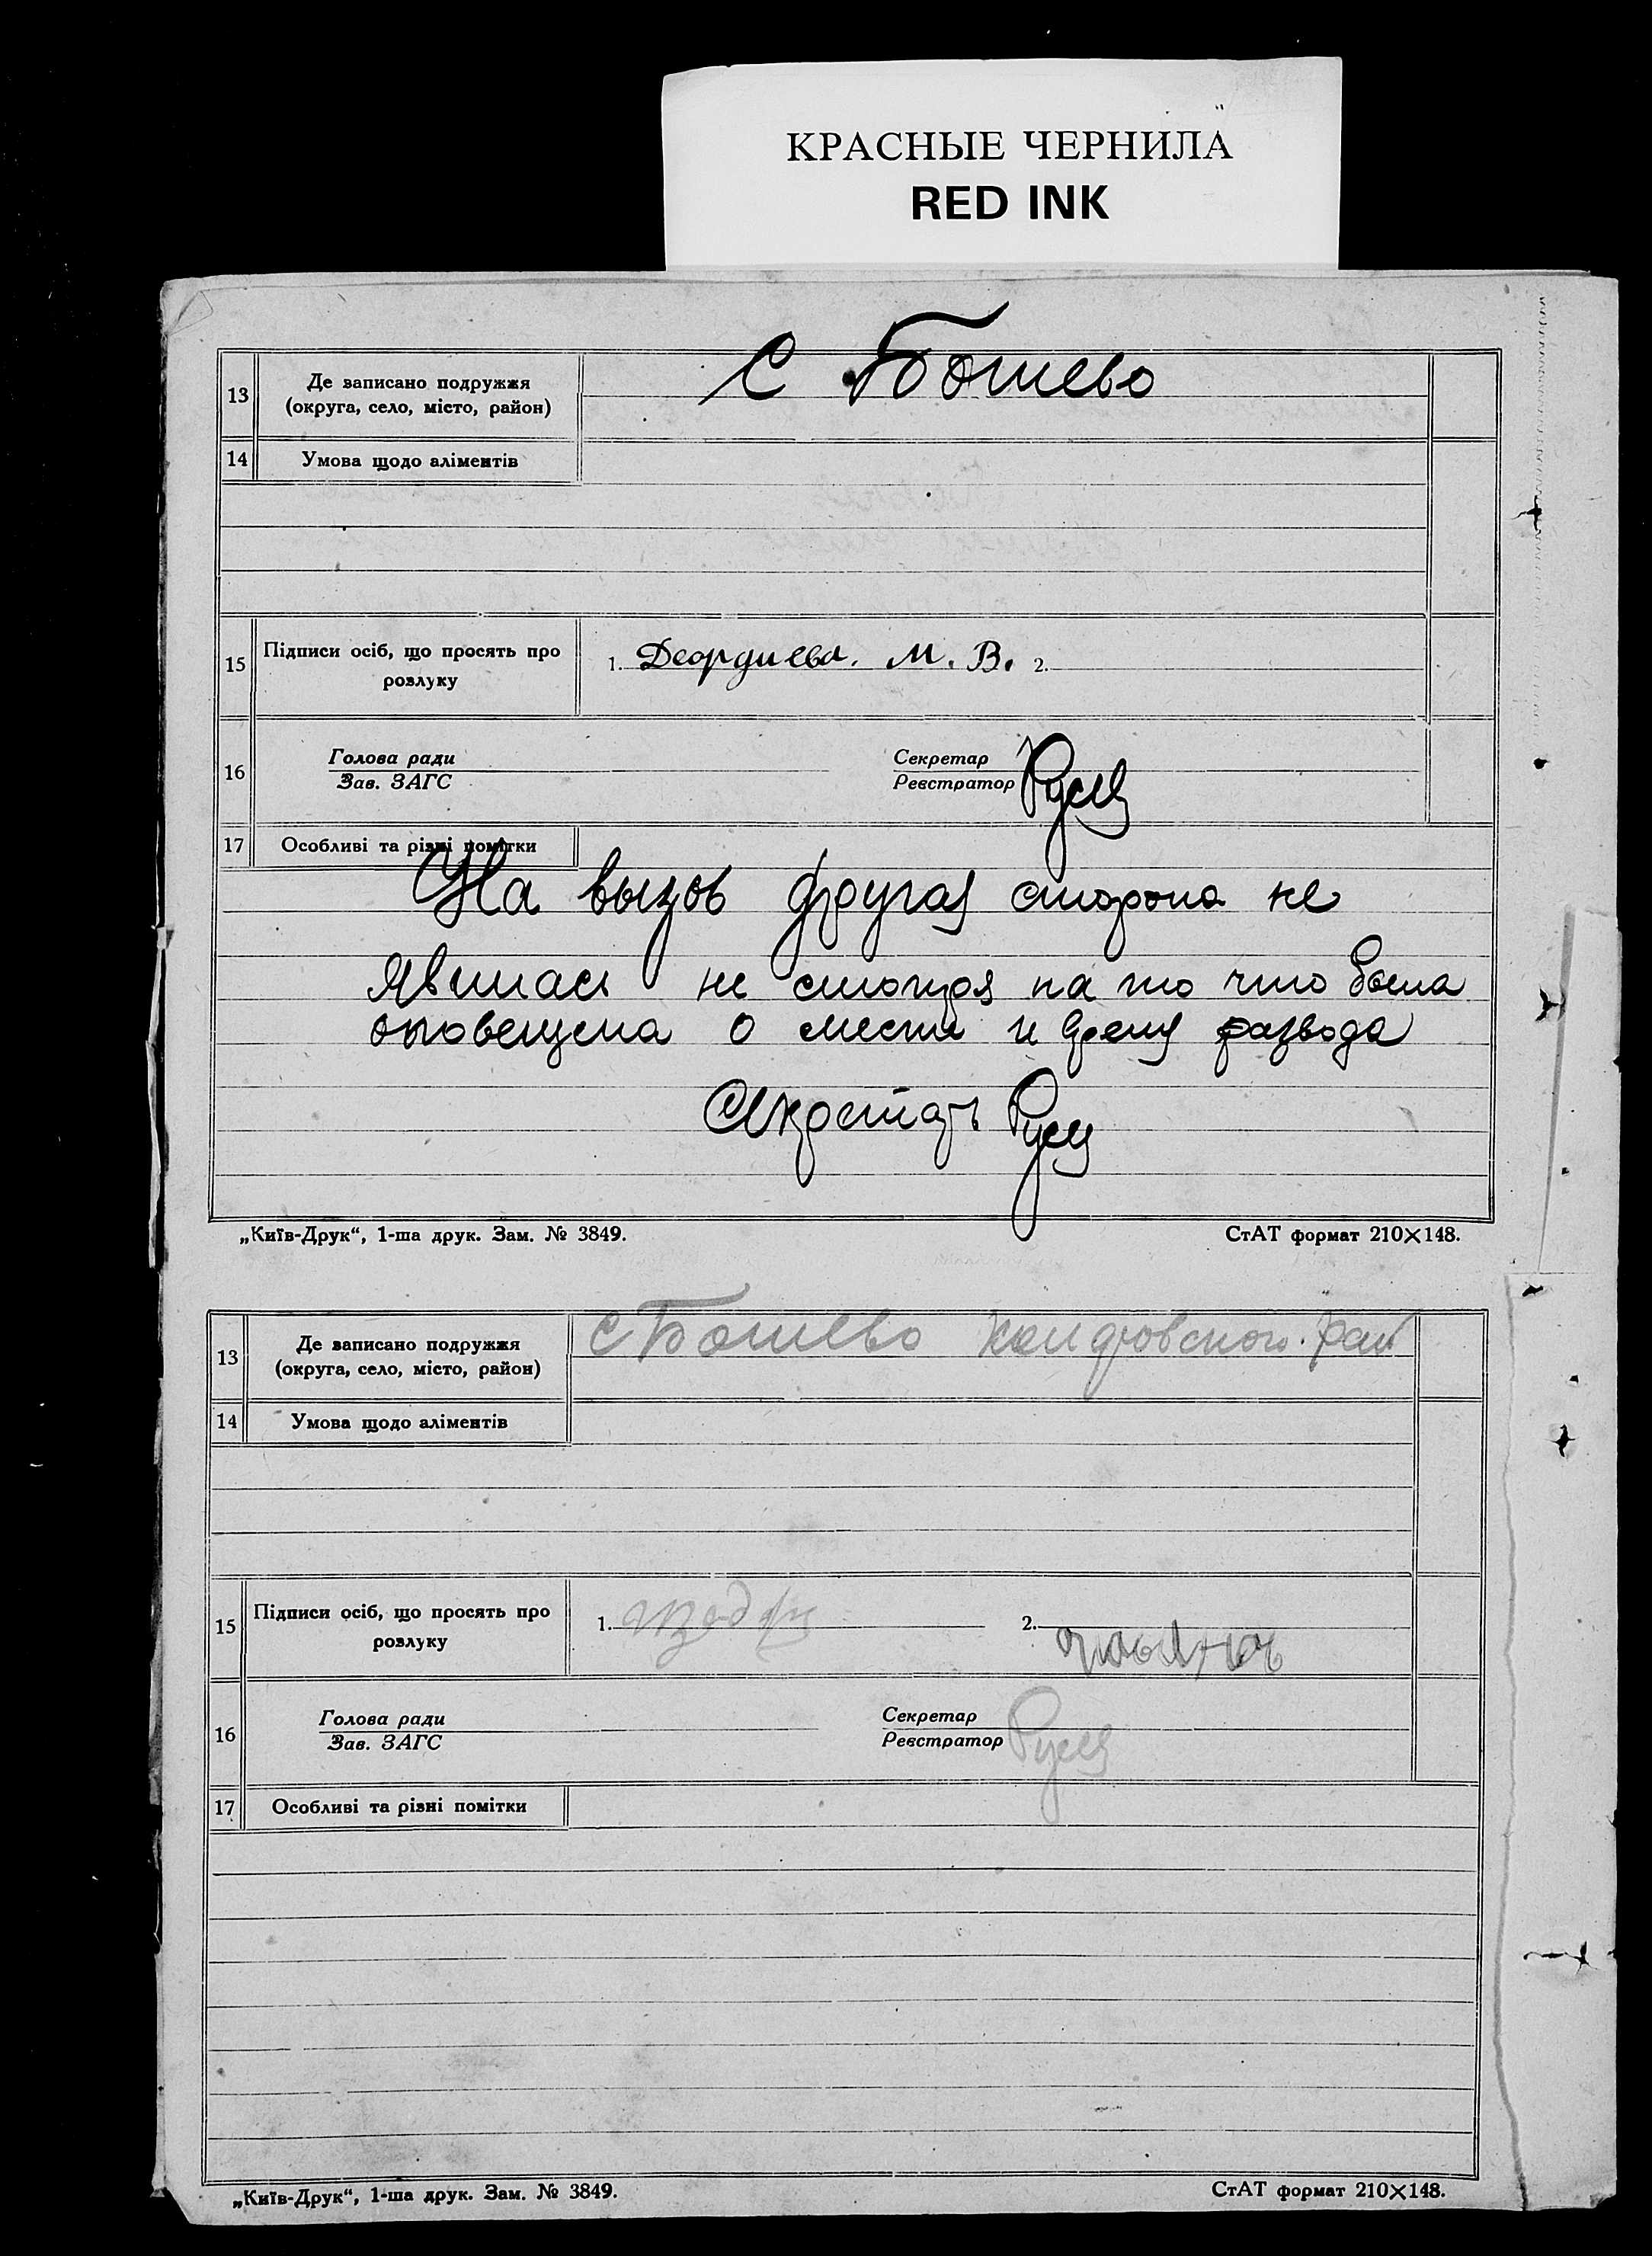 КРАСНЫЕ ЧЕРНИЛА
RED INK
13 Де записано подружжя (округа, село, місто, район) С Бошево
14 Умова щодо аліментів
15 Підписи осіб, що просять про розлуку 1. Деордиева. М. В. 2.
16 Голова ради Секретар
Зав. ЗАГС Реєстратор
17 Особливі та різні помітки
На вызов другая сторона не
явилась не смотря на то что была
оповещена о месте и врему развода
Секретарь
„Київ-Друк“, 1-ша друк. Зам. № 3849. СтАТ формат 210×148.
13 Де записано подружжя (округа, село, місто, район) С Бошево
14 Умова щодо аліментів
15 Підписи осіб, що просять про розлуку 1. 2.
16 Голова ради Секретар
Зав. ЗАГС Реєстратор
17 Особливі та різні помітки
„Київ-Друк“, 1-ша друк. Зам. № 3849. СтАТ формат 210×148.